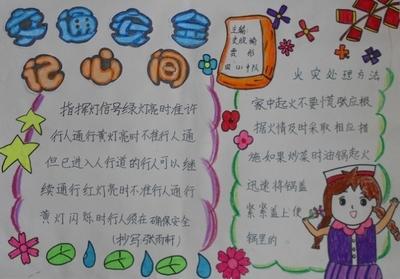 交通安全
记心间
指挥灯信号绿灯亮时准许
行人通行黄灯亮时不准行人通
但已进入人行道的行人可以继
续通行红灯亮时不准行人通行
黄灯闪烁时行人须在确保安全
(抄写张雨轩)
主编:
火灾处理方法
家中起火不要慌张应根
据火情及时采取相应措
施如果炒菜时油锅起火
迅速将锅盖
紧紧盖上使
锅里的